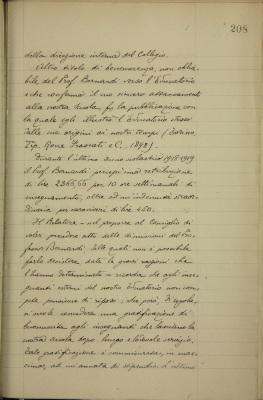 208
della direzione interna del Collegio.
Altro titolo di benemerenza, non oblia-
bile del Prof. Bernardi verso l'Educatorio
e che conferma il suo sincero attaccamento
alla nostra Scuola fu la pubblicazione con
la quale egli illustrò l'Educatorio stesso
dalle sue origini ai nostri tempi (Torino,
Tip. Roux Frassati e C., 1898).
Durante l'ultimo anno scolastico 1918-1919
il Prof. Bernardi percepì una retribuzione
di lire 2366,66 per 10 ore settimanali di
insegnamento, oltre ad un'indennità straor-
dinaria per caroviveri di lire 450.
Il Relatore - nel proporre al Consiglio di
voler prendere atto delle dimissioni del Pro-
fessor Bernardi, dalle quali non è possibile
farlo desistere date le gravi ragioni che
l'hanno determinato - ricorda che agli inse-
gnanti esterni del nostro Educatorio non com-
pete pensione di riposo; che però, di regola,
si suole concedere una gratificazione di
benemerenza agli insegnanti che lasciano la
nostra scuola dopo lungo e lodevole servizio.
Tale gratificazione è commisurata, in mas-
sima, ad un'annata di stipendio. L'ultimo